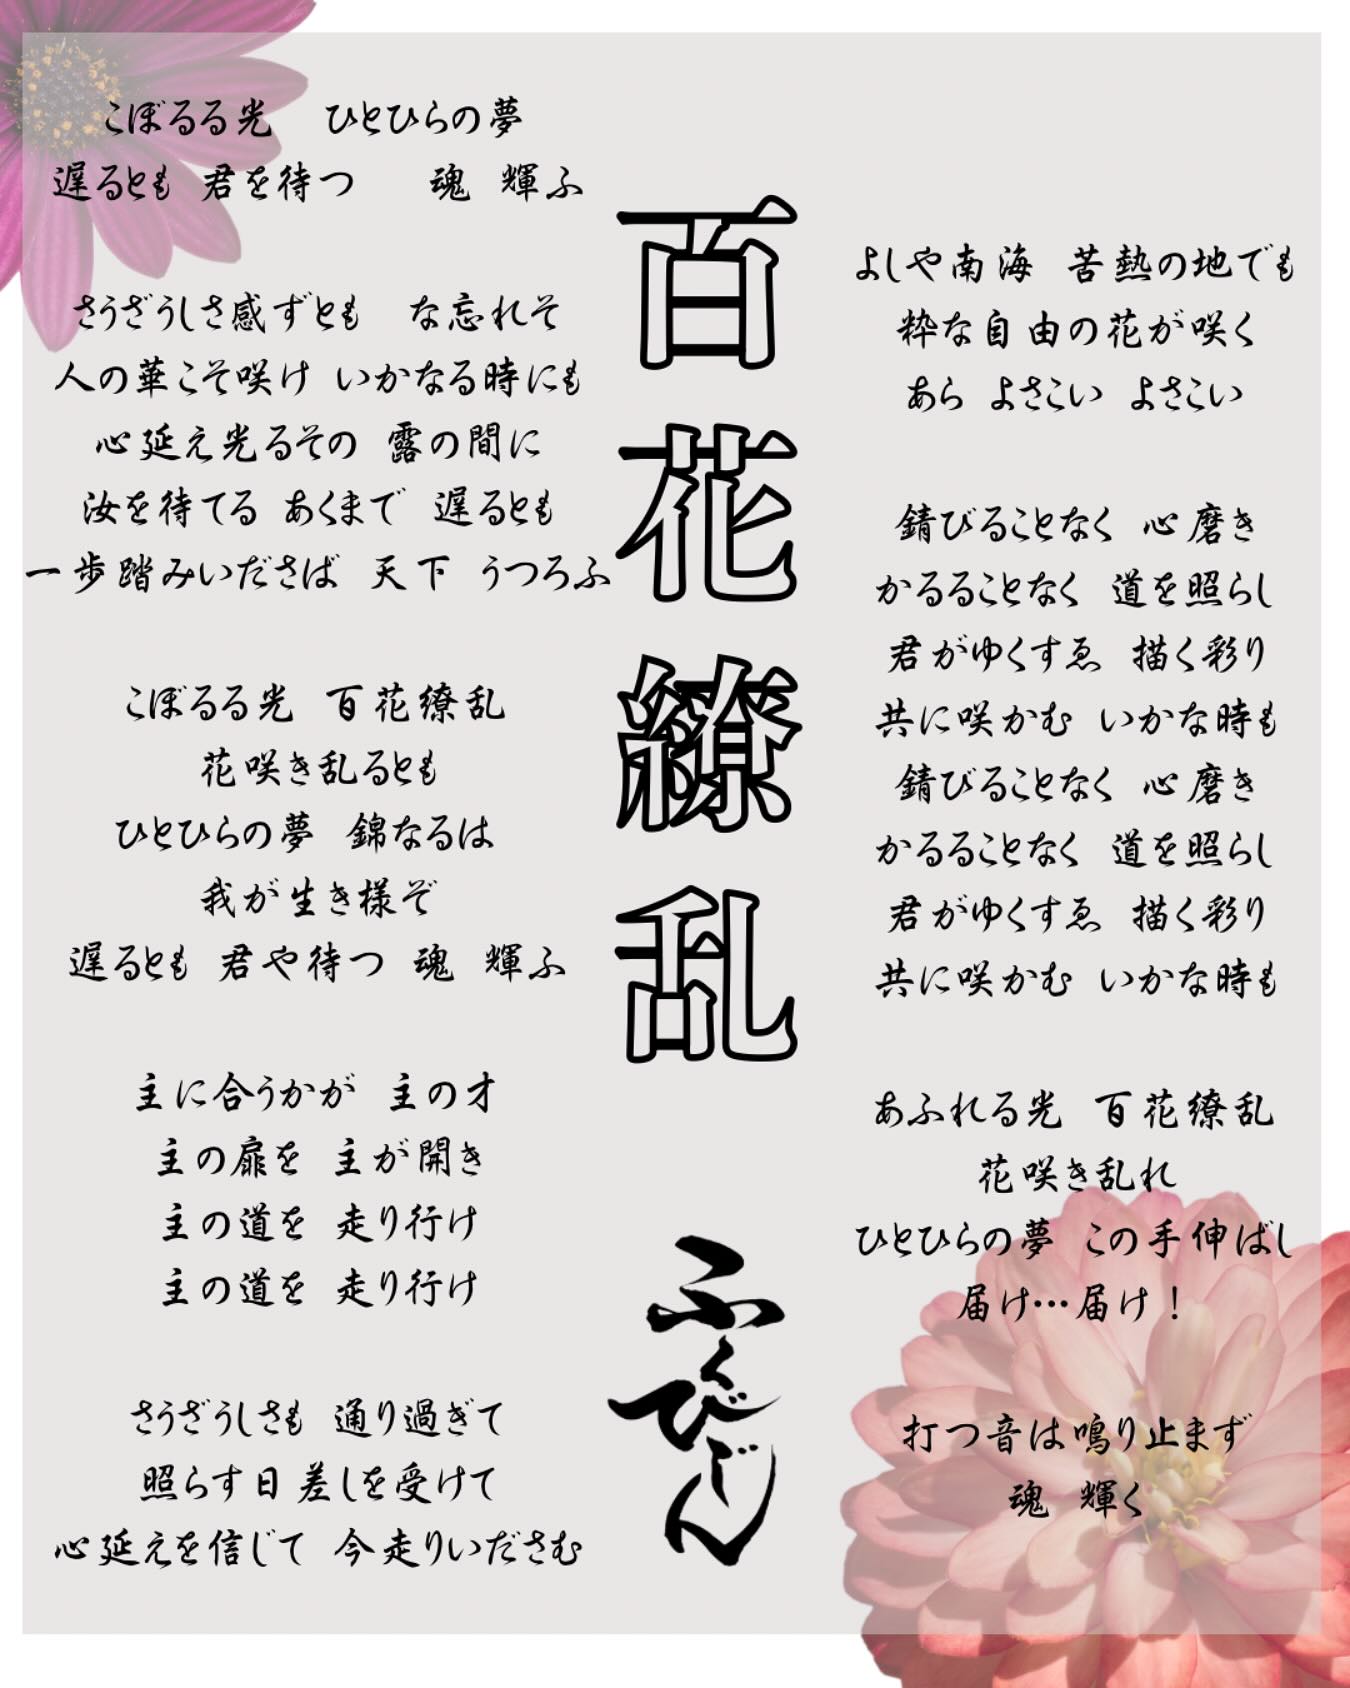 こぼるる光　ひとひらの夢
遅るとも 君を待つ　魂 輝ふ
さうざうしさ感ずとも　な忘れそ
人の華こそ咲け いかなる時にも
心延え光るその 露の間に
汝を待てる あくまで 遅るとも
一歩踏みいださば 天下 うつろふ
こぼるる光 百花繚乱
花咲き乱るとも
ひとひらの夢 錦なるは
我が生き様ぞ
遅るとも 君や待つ 魂 輝ふ
主に合うかが 主の才
主の扉を 主が開き
主の道を 走り行け
主の道を 走り行け
さうざうしさも 通り過ぎて
照らす日差しを受けて
心延えを信じて 今走りいださむ
百花繚乱
ふくびじん
よしや南海 苦熱の地でも
粋な自由の花が咲く
あら よさこい よさこい
錆びることなく 心磨き
かるることなく 道を照らし
君がゆくすゑ 描く彩り
共に咲かむ いかな時も
錆びることなく 心磨き
かるることなく 道を照らし
君がゆくすゑ 描く彩り
共に咲かむ いかな時も
あふれる光 百花繚乱
花咲き乱れ
ひとひらの夢 この手伸ばし
届け…届け！
打つ音は鳴り止まず
魂 輝く